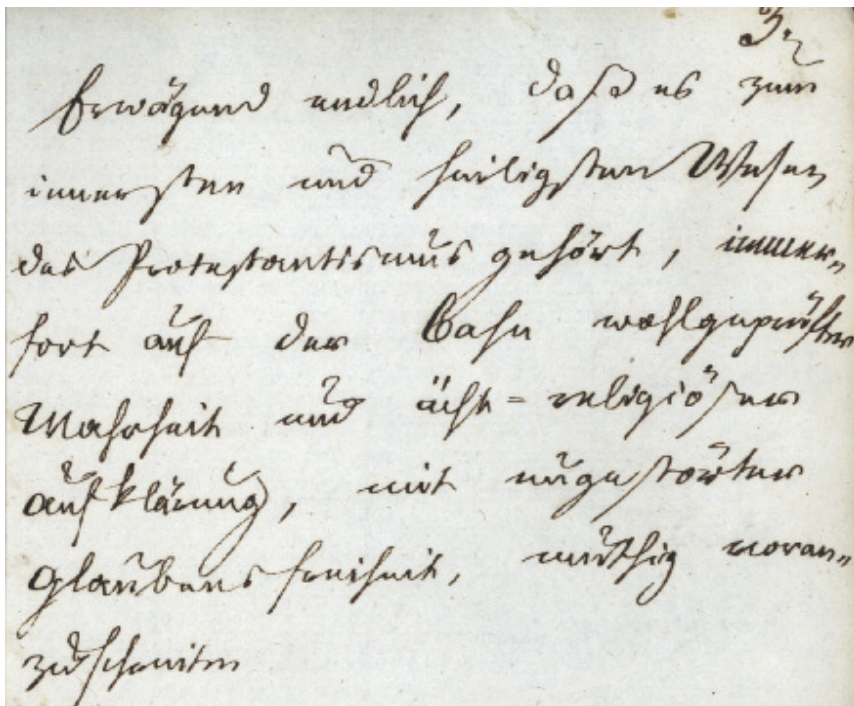 3.
Erwägend endlich, daß es zum
innersten und heiligsten Wesen
des Protestantismus gehört, immer-
fort auf der Bahn wohlgeprüfter
Wahrheit und ächt-religiöser
Aufklärung, mit ungestörter
Glaubensfreiheit, muthig voran-
zuschreiten